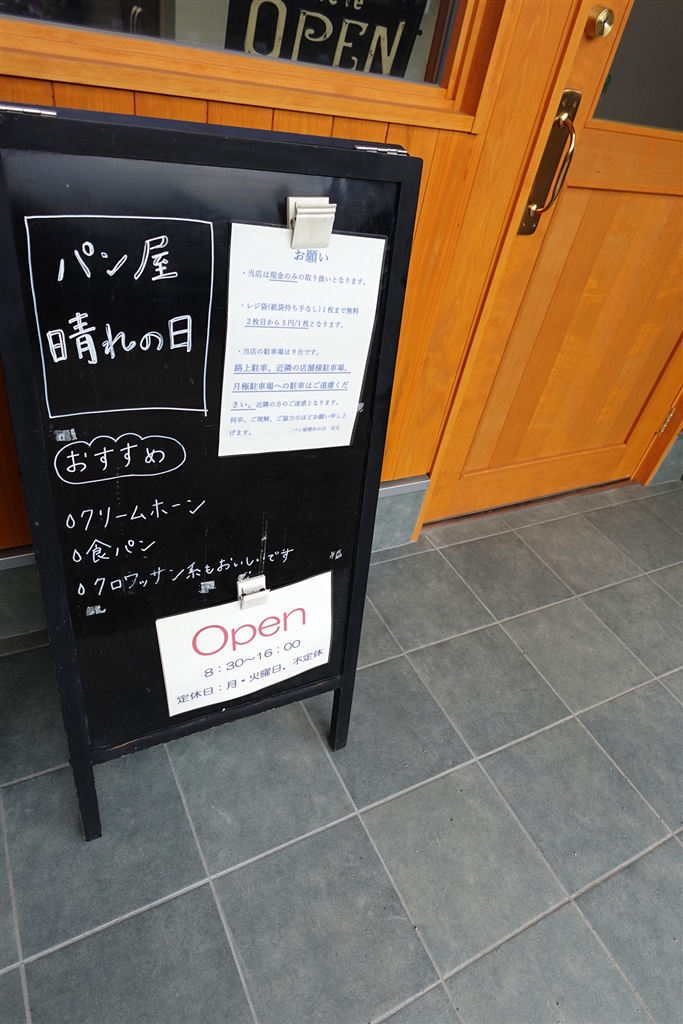 OPEN
パン屋
晴れの日
お願い
・当店は現金のみの取り扱いとなります。
・レジ袋(紙袋持ち手なし)1枚まで無料
2枚目から5円/1枚となります。
・当店の駐車場は9台です。
路上駐車、近隣の店舗様駐車場、
月極駐車場への駐車はご遠慮くだ
さい。近隣の方のご迷惑となります。
何卒、ご理解、ご協力のほどお願い申し上
げます。
パン屋晴れの日 店主
おすすめ
クリームホーン
食パン
クロワッサン系もおいしいです
Open
8:30~16:00
定休日:月・火曜日、不定休